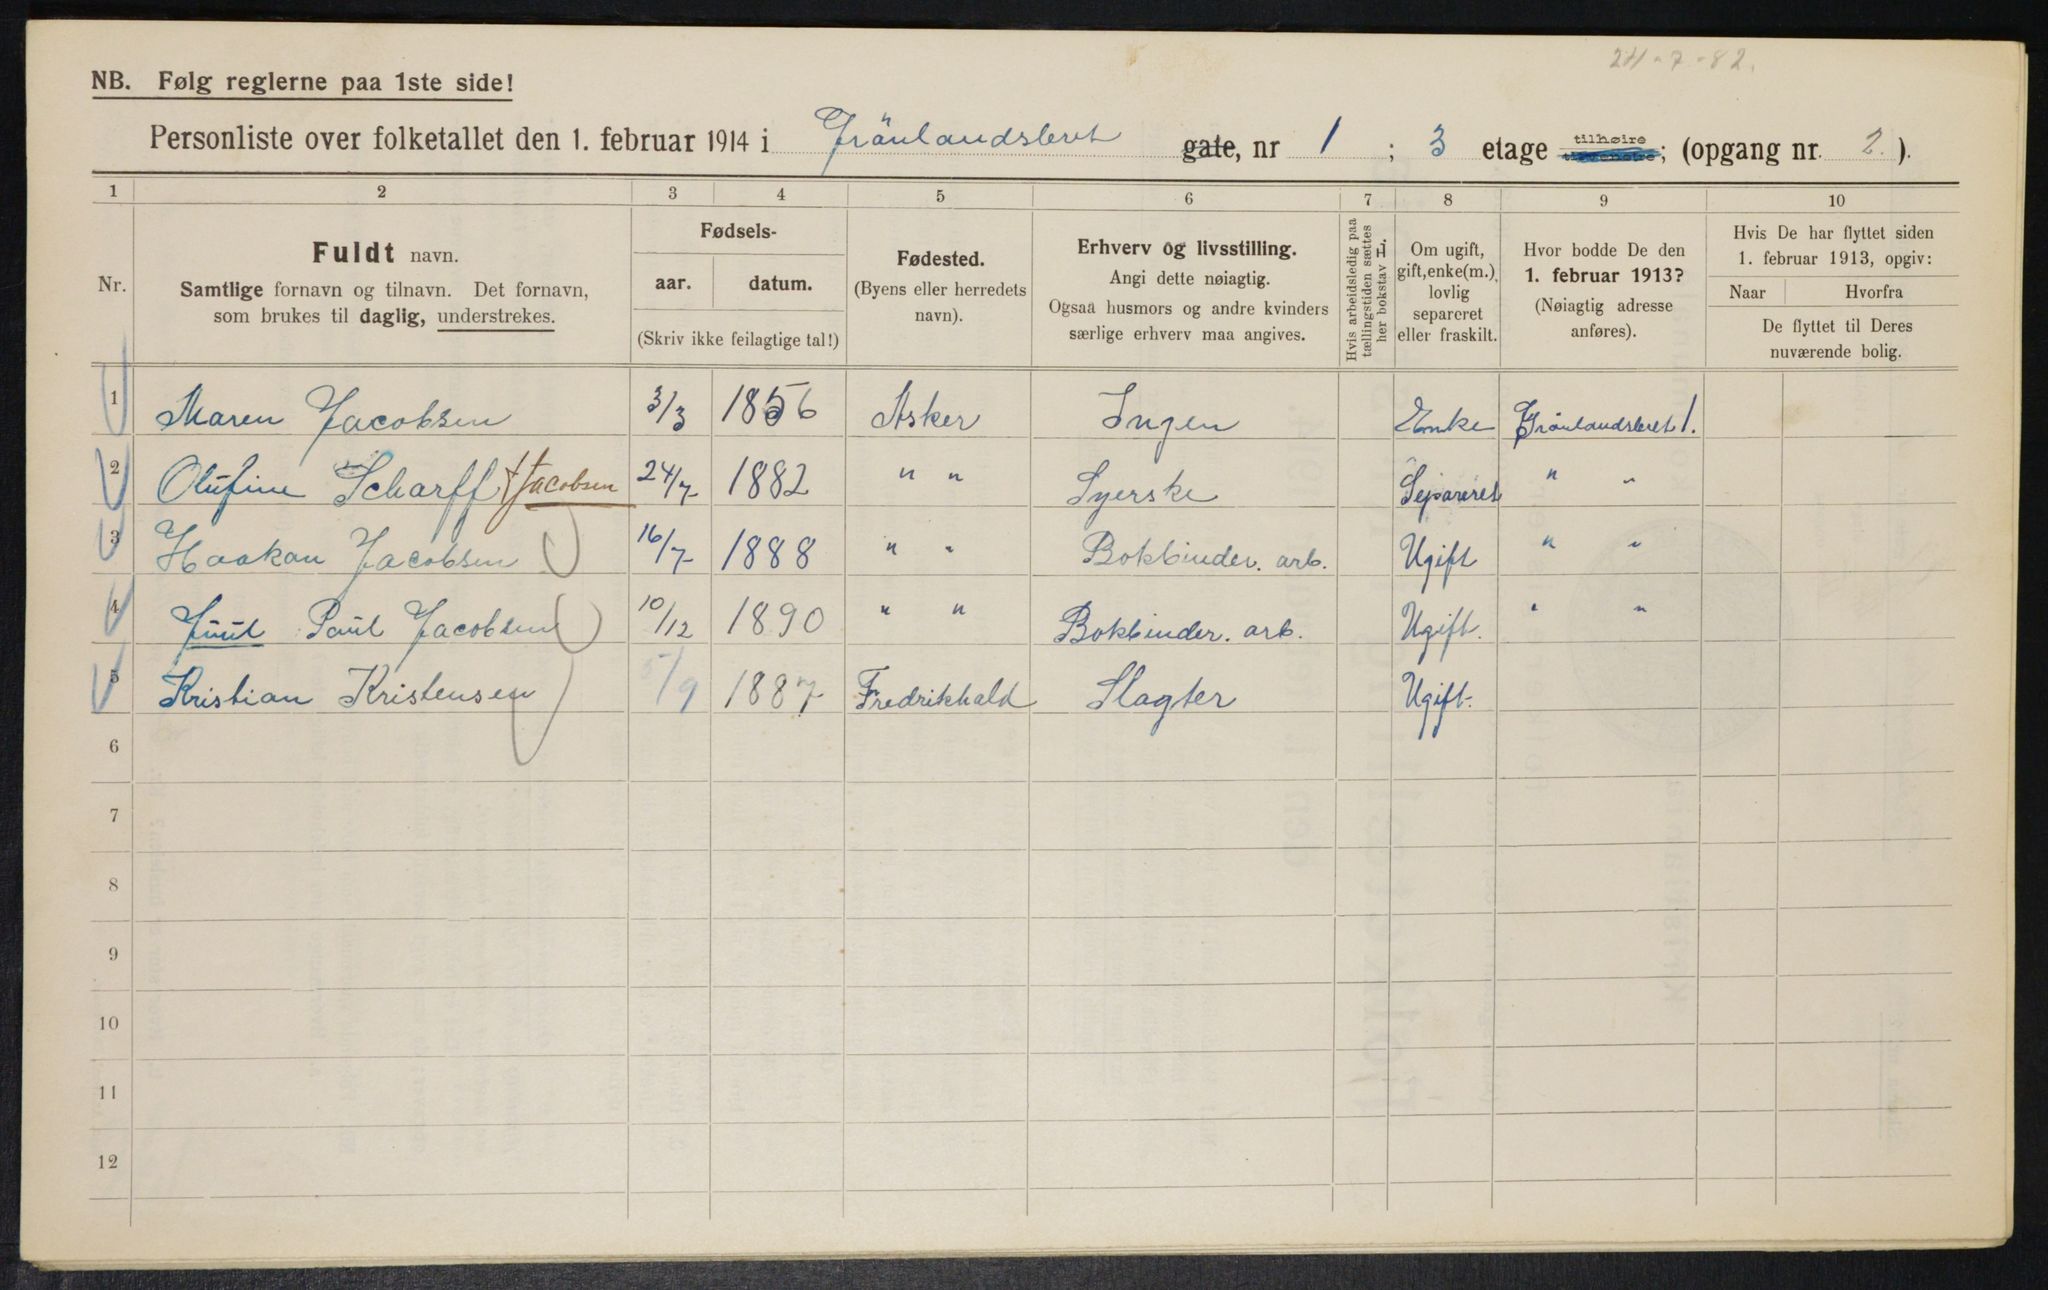 24-7-82.
NB. Følg reglerne paa 1ste side!
Personliste over folketallet den 1. februar 1914 i Grönlandsleret gate, nr 1 ; 3 etage tilhøire ; (opgang nr. 2 ).
1 2 3 4 5 6 7 8 9 10
Nr.
Fuldt navn.
Samtlige fornavn og tilnavn. Det fornavn,
som brukes til daglig, understrekes.
Fødsels-
aar. datum.
(Skriv ikke feilagtige tal!)
Fødested.
(Byens eller herredets
navn).
Erhverv og livsstilling.
Angi dette nøiagtig.
Ogsaa husmors og andre kvinders
særlige erhverv maa angives.
Hvis arbeidsledig paa
tællingstiden sættes
her bokstav L.
Om ugift,
gift, enke(m.),
lovlig
separeret
eller fraskilt.
Hvor bodde De den
1. februar 1913?
(Nøiagtig adresse
anføres).
Hvis De har flyttet siden
1. februar 1913, opgiv:
Naar Hvorfra
De flyttet til Deres
nuværende bolig.
1 Maren Jacobsen 3/3 1856 Asker Ingen Enke Grönlandsleret 1.
2 Olufine Scharff f Jacobsen 24/7 1882 " " Syerske Separeret " "
3 Haakon Jacobsen 16/7 1888 " " Bokbinder. arb. Ugift " "
4 Juul Paul Jacobsen 10/12 1890 " " Bokbinder. arb. Ugift. " "
5 Kristian Kristensen 5/9 1887 Fredrikhald Slagter Ugift.
6
7
8
9
10
11
12